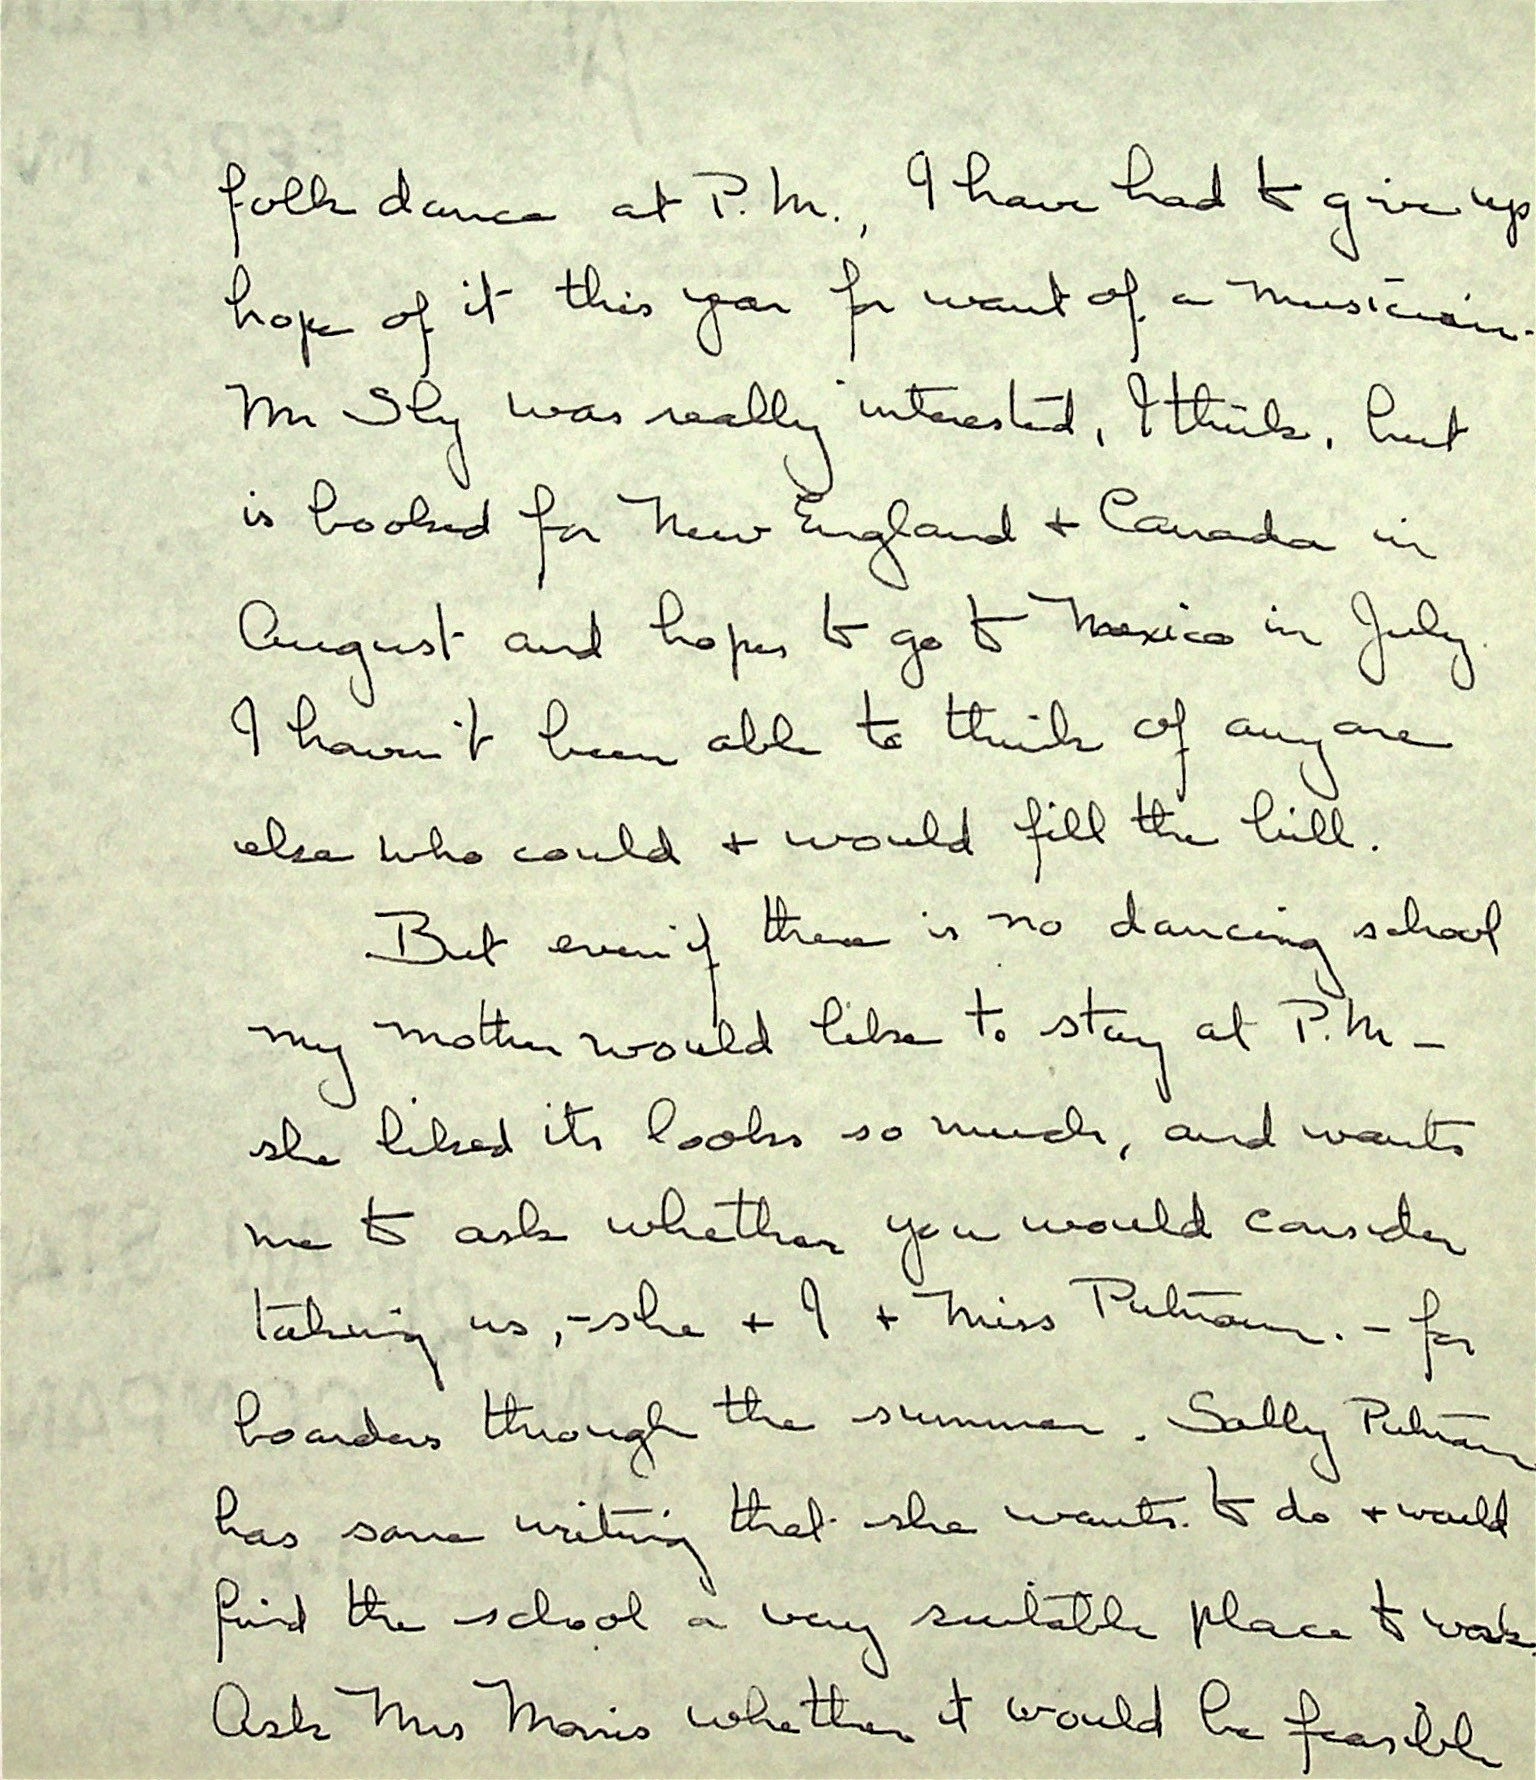 folk dance at P.M., I have had to give up
hope of it this year for want of a musician.
Mr Sly was really interested, I think, but
is booked for New England + Canada in
August and hopes to go to Mexico in July.
I haven't been able to think of anyone
else who could + would fill the bill.
But even if there is no dancing school
my mother would like to stay at P.M –
she liked its looks so much, and wants
me to ask whether you would consider
taking us, – she + I + Miss Putnam. – for
boarders through the summer. Sally Putnam
has some writing that she wants to do + would
find the school a very suitable place to work.
Ask Mrs Morris whether it would be feasible